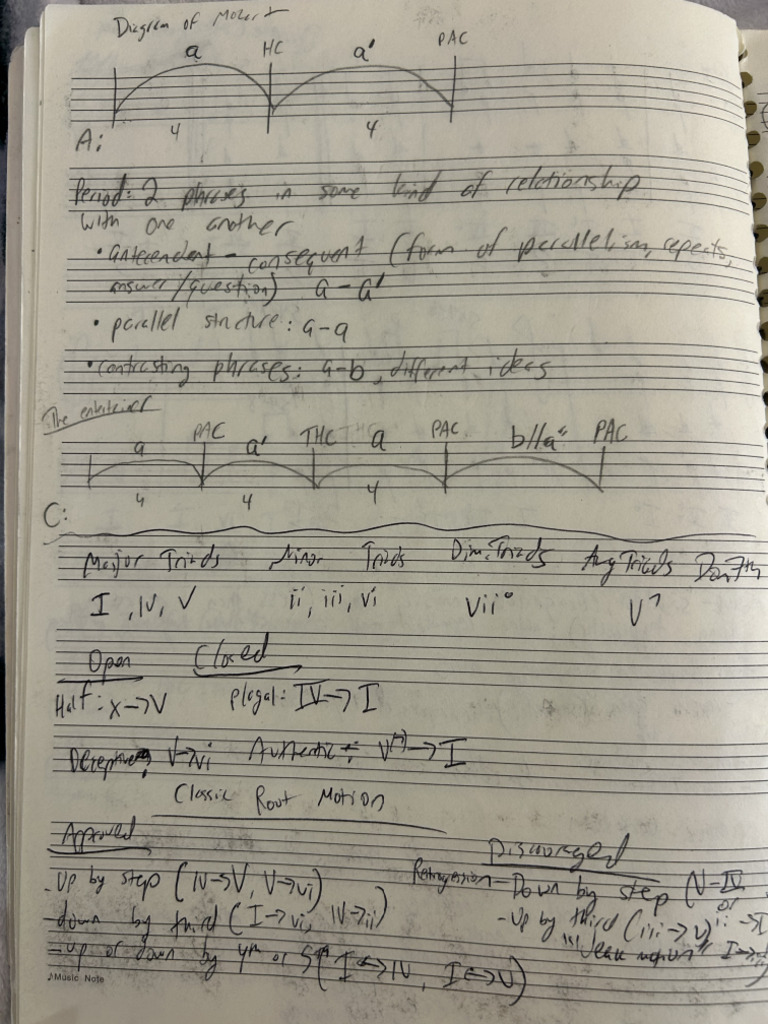 Diagram of Mozart
a HC a' PAC
4 4
A:
Period: 2 phrases in some kind of relationship
with one another
• antecendent - consequent (form of parallelism, repeats,
answer/question) a - a'
• parallel structure: a-a
• contrasting phrases: a-b, different ideas
The entertainer
a PAC a' THC THC a PAC b//a" PAC
4 4 4
C:
Major Triads Minor Triads Dim. Triads Aug Triads Dom 7th
I, IV, V ii, iii, vi vii° V7
Open Closed
Half: x→V plagal: IV→I
Deceptive: V→vi Authentic: V(7)→I
Classic Root Motion
Approved Discouraged
- up by step (IV→V, V→vi) Retrogression - Down by step (V-IV
or
- down by third (I→vi, IV→ii) - up by third (iii→V) ii→I
- up or down by 4th or 5th (I↔IV, I↔V) "weak motion"
♪Music Note